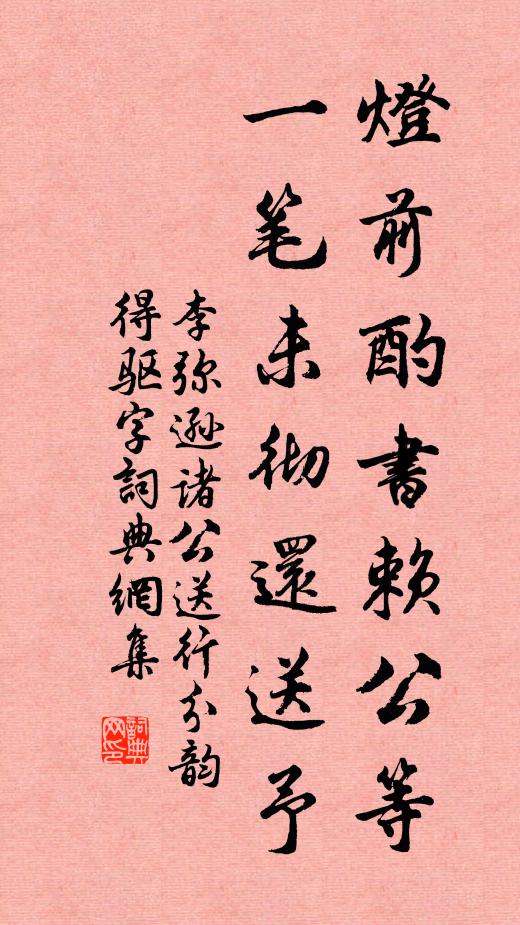 燈前酌書賴公等
一笔未彻還送予
李弥遜诸公送行分韵
得驱字詞典網集
詞典
网印